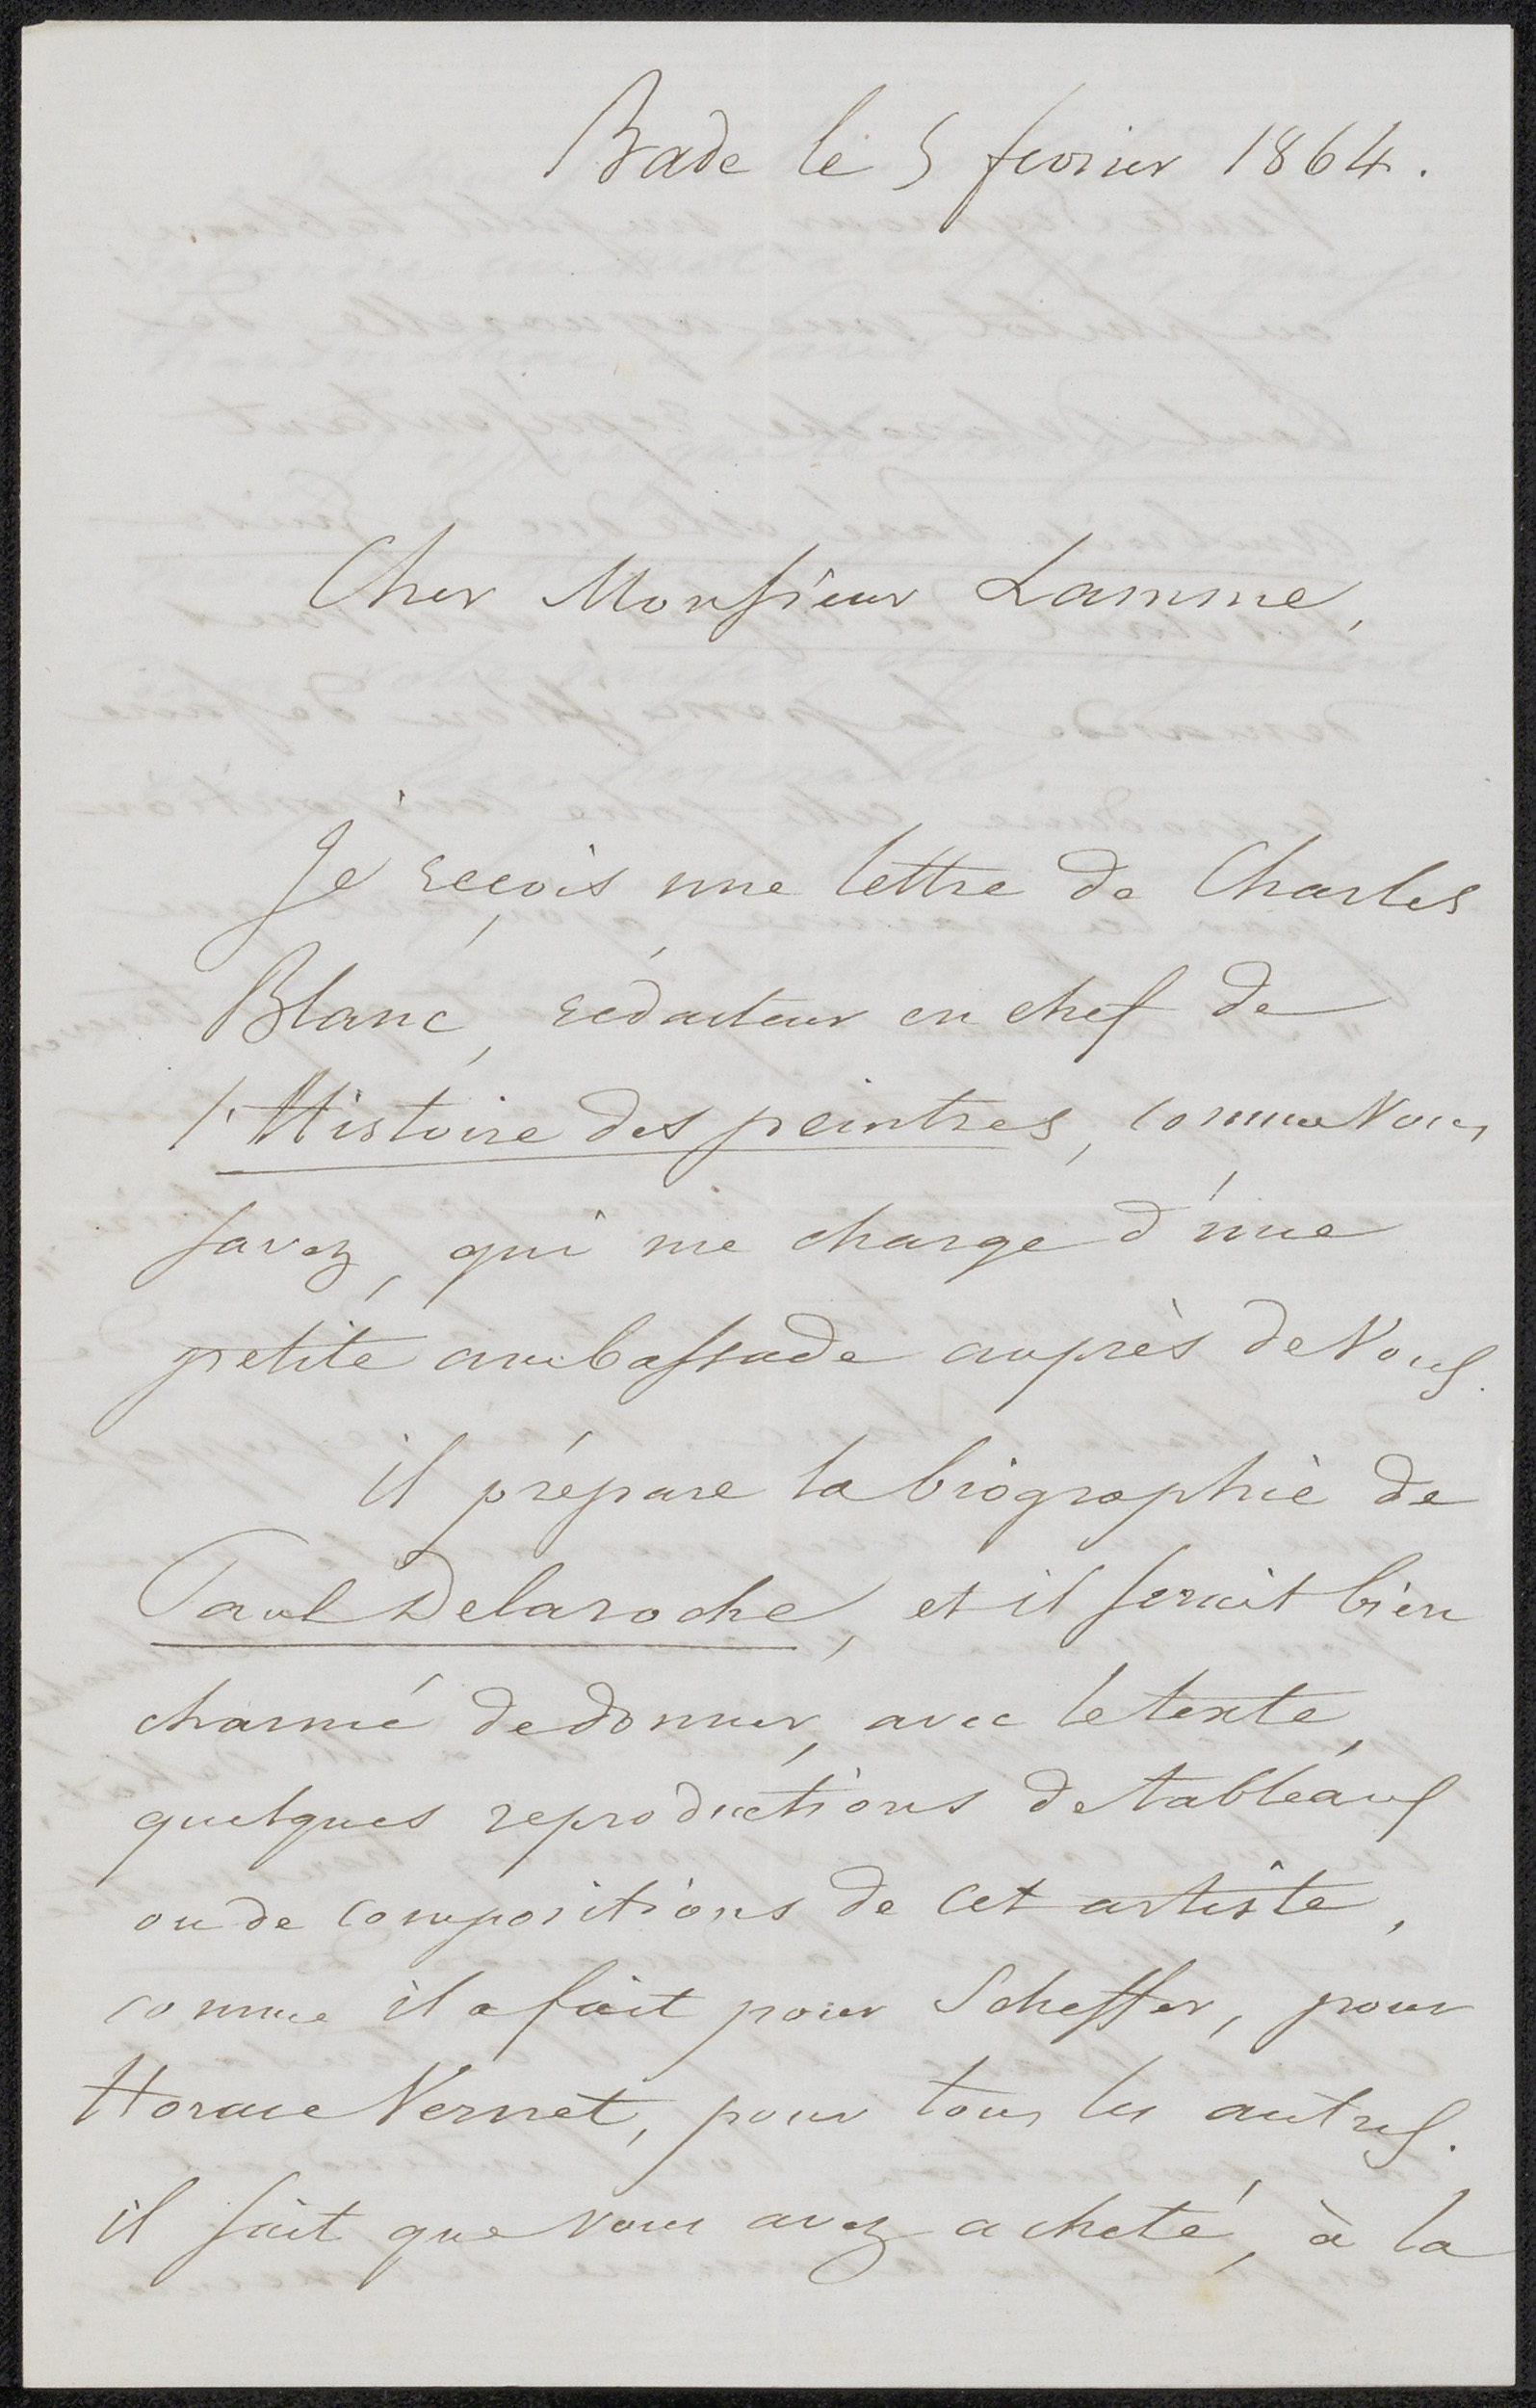 Bade le 5 fevrier 1864.
Cher Monsieur Lamme,
Je reçois une lettre de Charles
Blanc, rédacteur en chef de
l'Histoire des peintres, comme Vous
savez, qui me charge d'une
petite ambassade auprès de Vous.
il prépare la biographie de
Paul Delaroche, et il serait bien
charmé de donner, avec le texte,
quelques reproductions de tableaux
ou de compositions de cet artiste,
comme il a fait pour Scheffer, pour
Horace Vernet, pour tous les autres.
il sait que vous avez acheté, à la